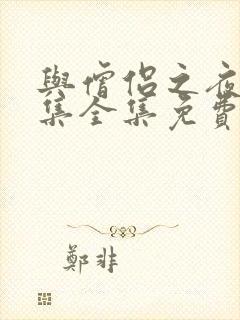 與僧侶之夜
集全集免費
鄭非